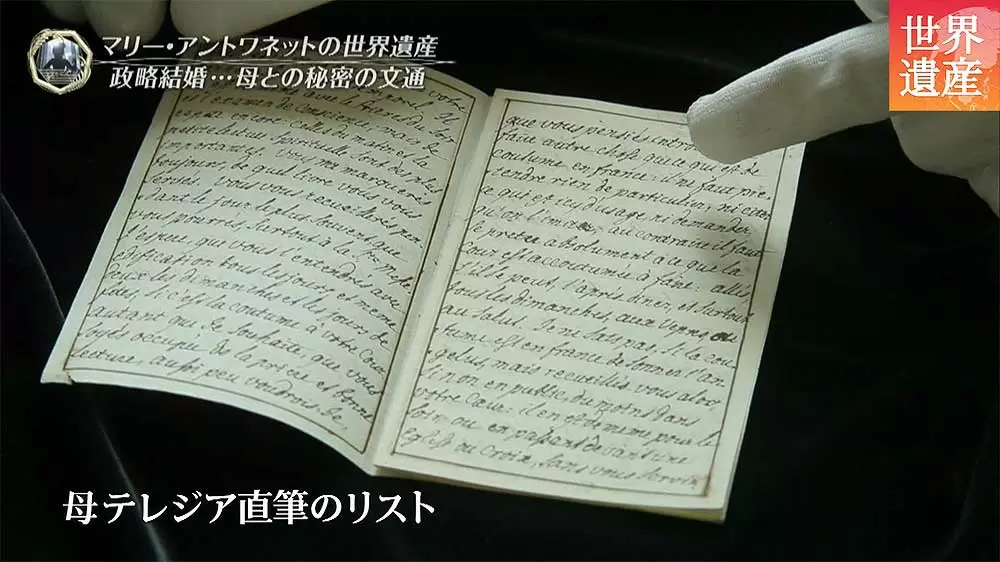 マリー・アントワネットの世界遺産
政略結婚…母との秘密の文通
世界
遺産
votre
et l'examen de Conscience, mais
encore Celles du matin et la
lecture Spirituelle, sont des plus
importantes, vous me marquerés
toujours de quel livre vous vous
servés. vous vous recueillerés pen-
dant le jour le plus Souvent que
vous pourrés, Surtout à la Ste messe
j'espere, que vous l'entendrés avec
edification tous les jours et meme
deux les dimanches et les jours de
fetes, si c'est la coutume à votre Cour.
autant que je Souhaite, que vous
soyés occupée de la priere et bonne
lecture, aussi peu voudrois-je,
que vous pensiés
faire autre chose que ce qui est de
coutume en france: il ne faut pré-
tendre rien de particulier, ni citer
ce qui est icy d'usage ni demander
qu'on l'imite: au contraire il faut
se preter absolument à ce que la
Cour est accoutumée à faire. allés
S'il se peut, l'après diner, et Surtout
tous les dimanches, aux vepres ou
au Salut. Je ne Sais pas, Si la cou-
tume est en france de Sonner l'an-
gelus, mais recueillés vous alors
Si non en public du moins dans
votre Cœur: il en est de meme pour le
Soir ou en passant devant une
Eglise ou Croix, Sans vous Servir
母テレジア直筆のリスト